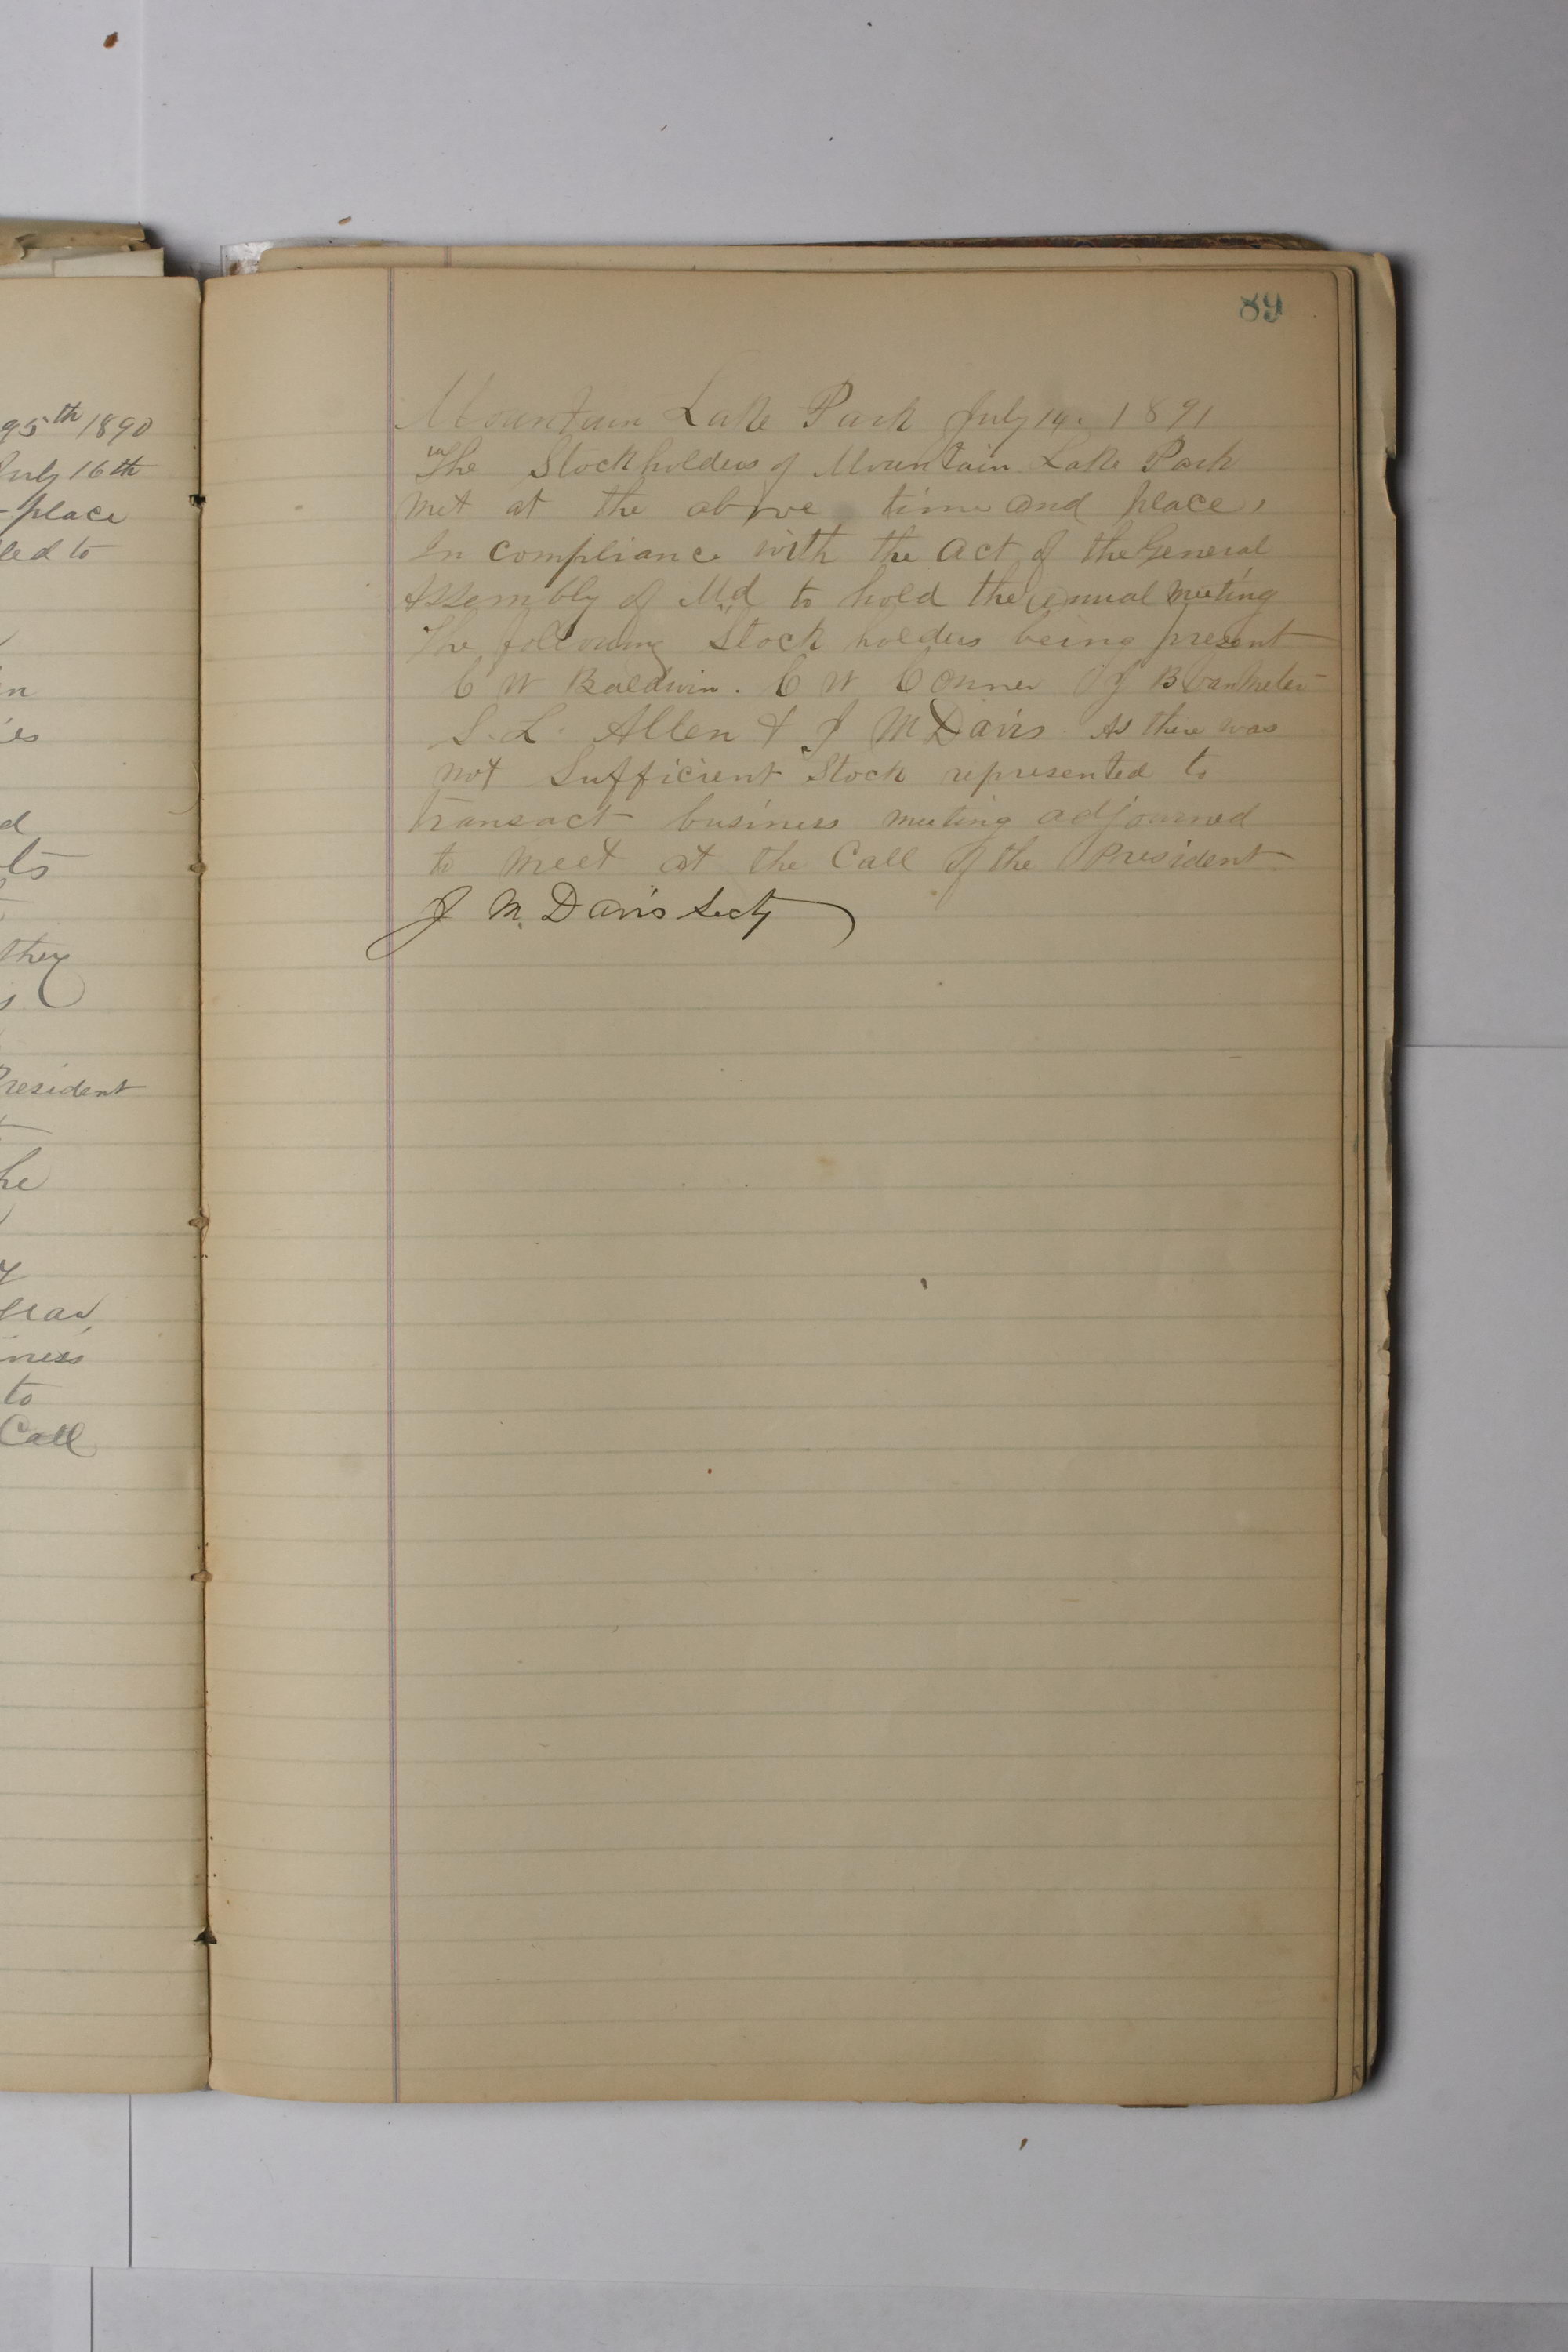 95th 1890
July 16th
place
led to
n
ies
d
ts
they
s
President
he
y
ness
to
Call
89
Mountain Lake Park July 14. 1891
The Stockholders of Mountain Lake Park
met at the above time and place,
In compliance with the act of the General
Assembly of Md to hold the annual meeting
The following Stock holders being present
C W Baldwin. C W Conner J B Van Meter
S. L. Allen & J M Davis. As there was
not Sufficient Stock represented to
transact business meeting adjourned
to meet at the Call of the President
J M. Davis Secty